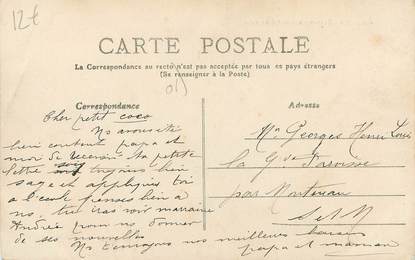 12€
CARTE POSTALE
La Correspondance au recto n'est pas acceptée par tous les pays étrangers
(Se renseigner à la Poste)
Correspondance
Adresse
Cher petit coco
Nous avons été
bien content papa et
moi de recevoir ta petite
lettre soit toujours bien
sage et appliques toi
à l'école penses bien à
nous. tu iras voir marraine
Andrée pour nous donner
de ses nouvelles
Nous t'envoyons nos meilleurs baisers
papa et maman
Mr Georges Henri Louis
la Gde Paroisse
par Montereau
S et M